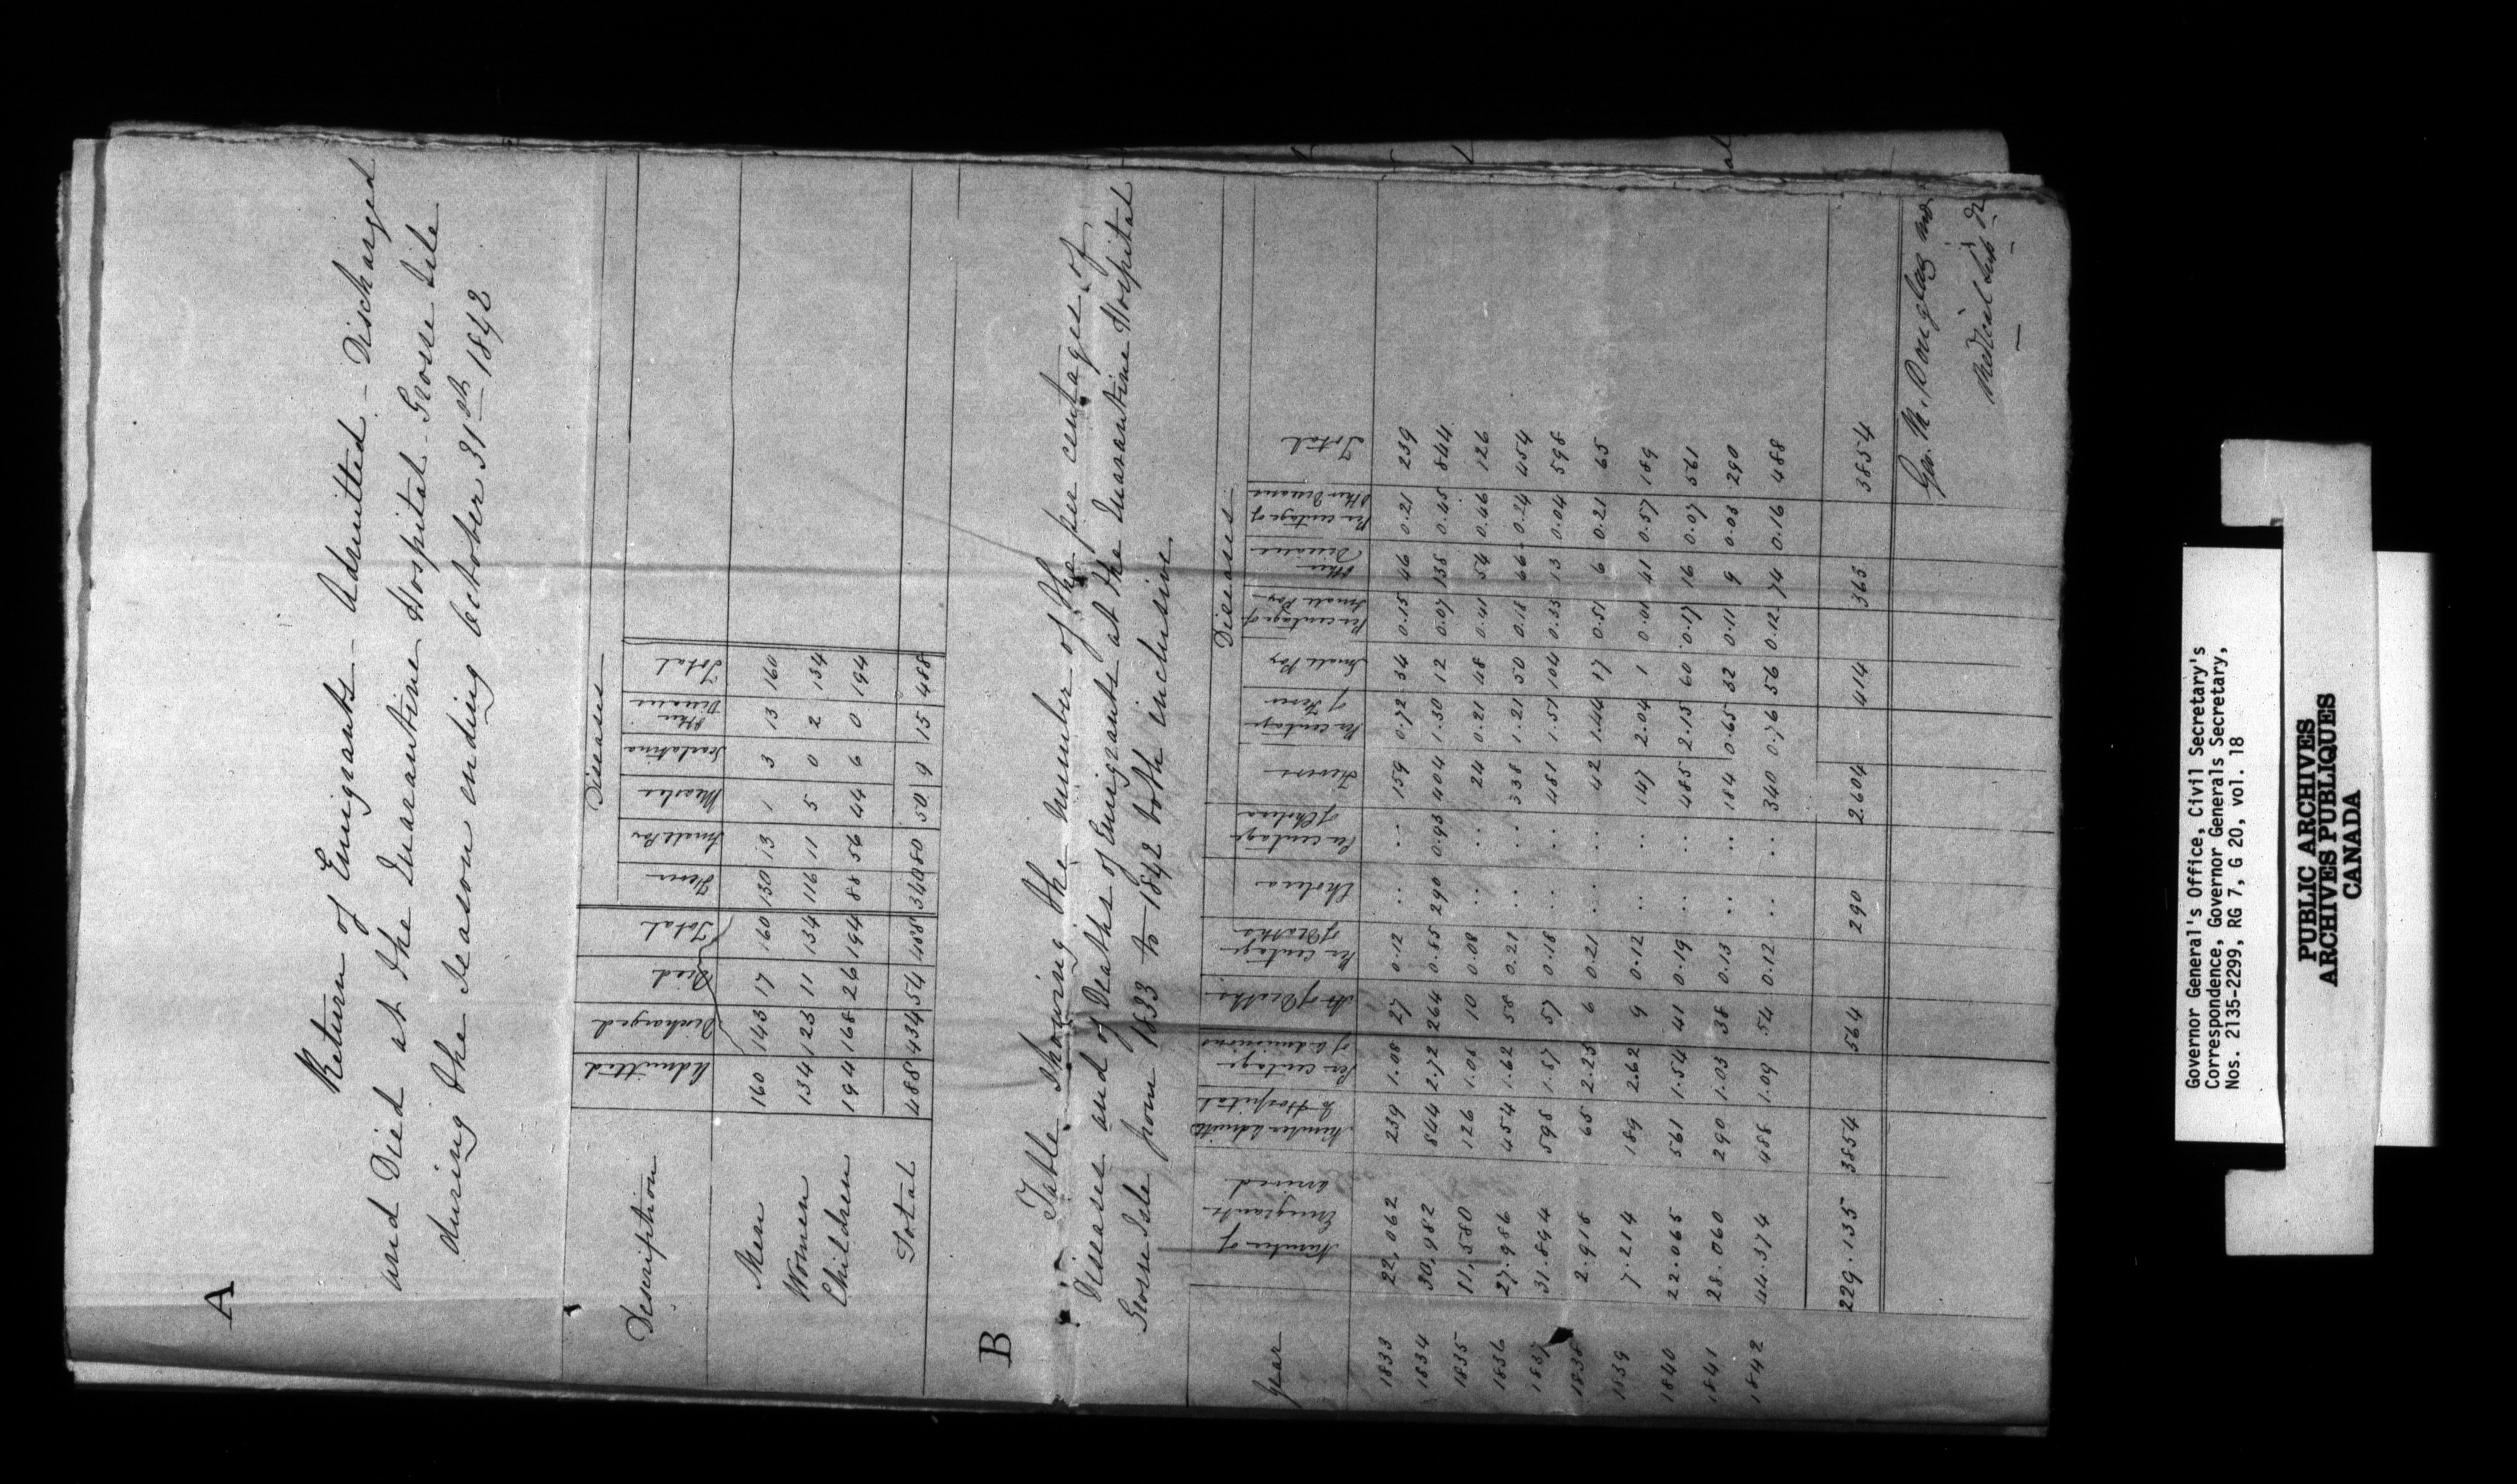 A
Return of Emigrants - Admitted - Discharged
and Died at the Quarantine Hospital Grosse Isle
during the Season ending October 31st 1842
Diseases
Description Admitted Discharged Died Total Fever Small Pox Measles Scarlatina Other Diseases Total
Men 160 143 17 160 130 13 1 3 13 160
Women 134 123 11 134 116 11 5 0 2 134
Children 194 168 26 194 88 56 44 6 0 194
Total 488 434 54 488 340 80 50 9 15 488
B
Table showing the number of the per centages of
Diseases and of Deaths of Emigrants at the Quarantine Hospital
Grosse Isle from 1833 to 1842 both inclusive
Diseases
Year Number of Emigrants arrived Number admitted to Hospital Per centage of admissions No of Deaths Per centage of Deaths Cholera Per centage of Cholera Fevers Per centage of Fever Small Pox Per centage of Small Pox Other Diseases Per centage of Other Diseases Total
1833 22,062 239 1.08 27 0.12 .. .. 159 0.72 34 0.15 46 0.21 239
1834 30,982 844 2.72 264 0.85 290 0.93 404 1.30 12 0.07 138 0.45 844
1835 11,580 126 1.08 10 0.08 .. .. 24 0.21 48 0.41 54 0.46 126
1836 27.986 454 1.62 58 0.21 .. .. 338 1.21 50 0.18 66 0.24 454
1837 31.894 598 1.87 57 0.18 .. .. 481 1.51 104 0.33 13 0.04 598
1838 2.918 65 2.23 6 0.21 .. .. 42 1.44 17 0.51 6 0.21 65
1839 7.214 189 2.62 9 0.12 .. .. 147 2.04 1 0.01 41 0.57 189
1840 22.065 561 1.54 41 0.19 .. .. 485 2.15 60 0.17 16 0.07 561
1841 28.060 290 1.03 38 0.13 .. .. 184 0.65 32 0.11 9 0.03 290
1842 44.374 488 1.09 54 0.12 .. .. 340 0.76 56 0.12 74 0.16 488
229.135 3854 564 290 2.604 414 363 3854
Geo. M. Douglas MD
Medical Supt
Governor General's Office, Civil Secretary's
Correspondence, Governor Generals Secretary,
Nos. 2135-2299, RG 7, G 20, vol. 18
PUBLIC ARCHIVES
ARCHIVES PUBLIQUES
CANADA